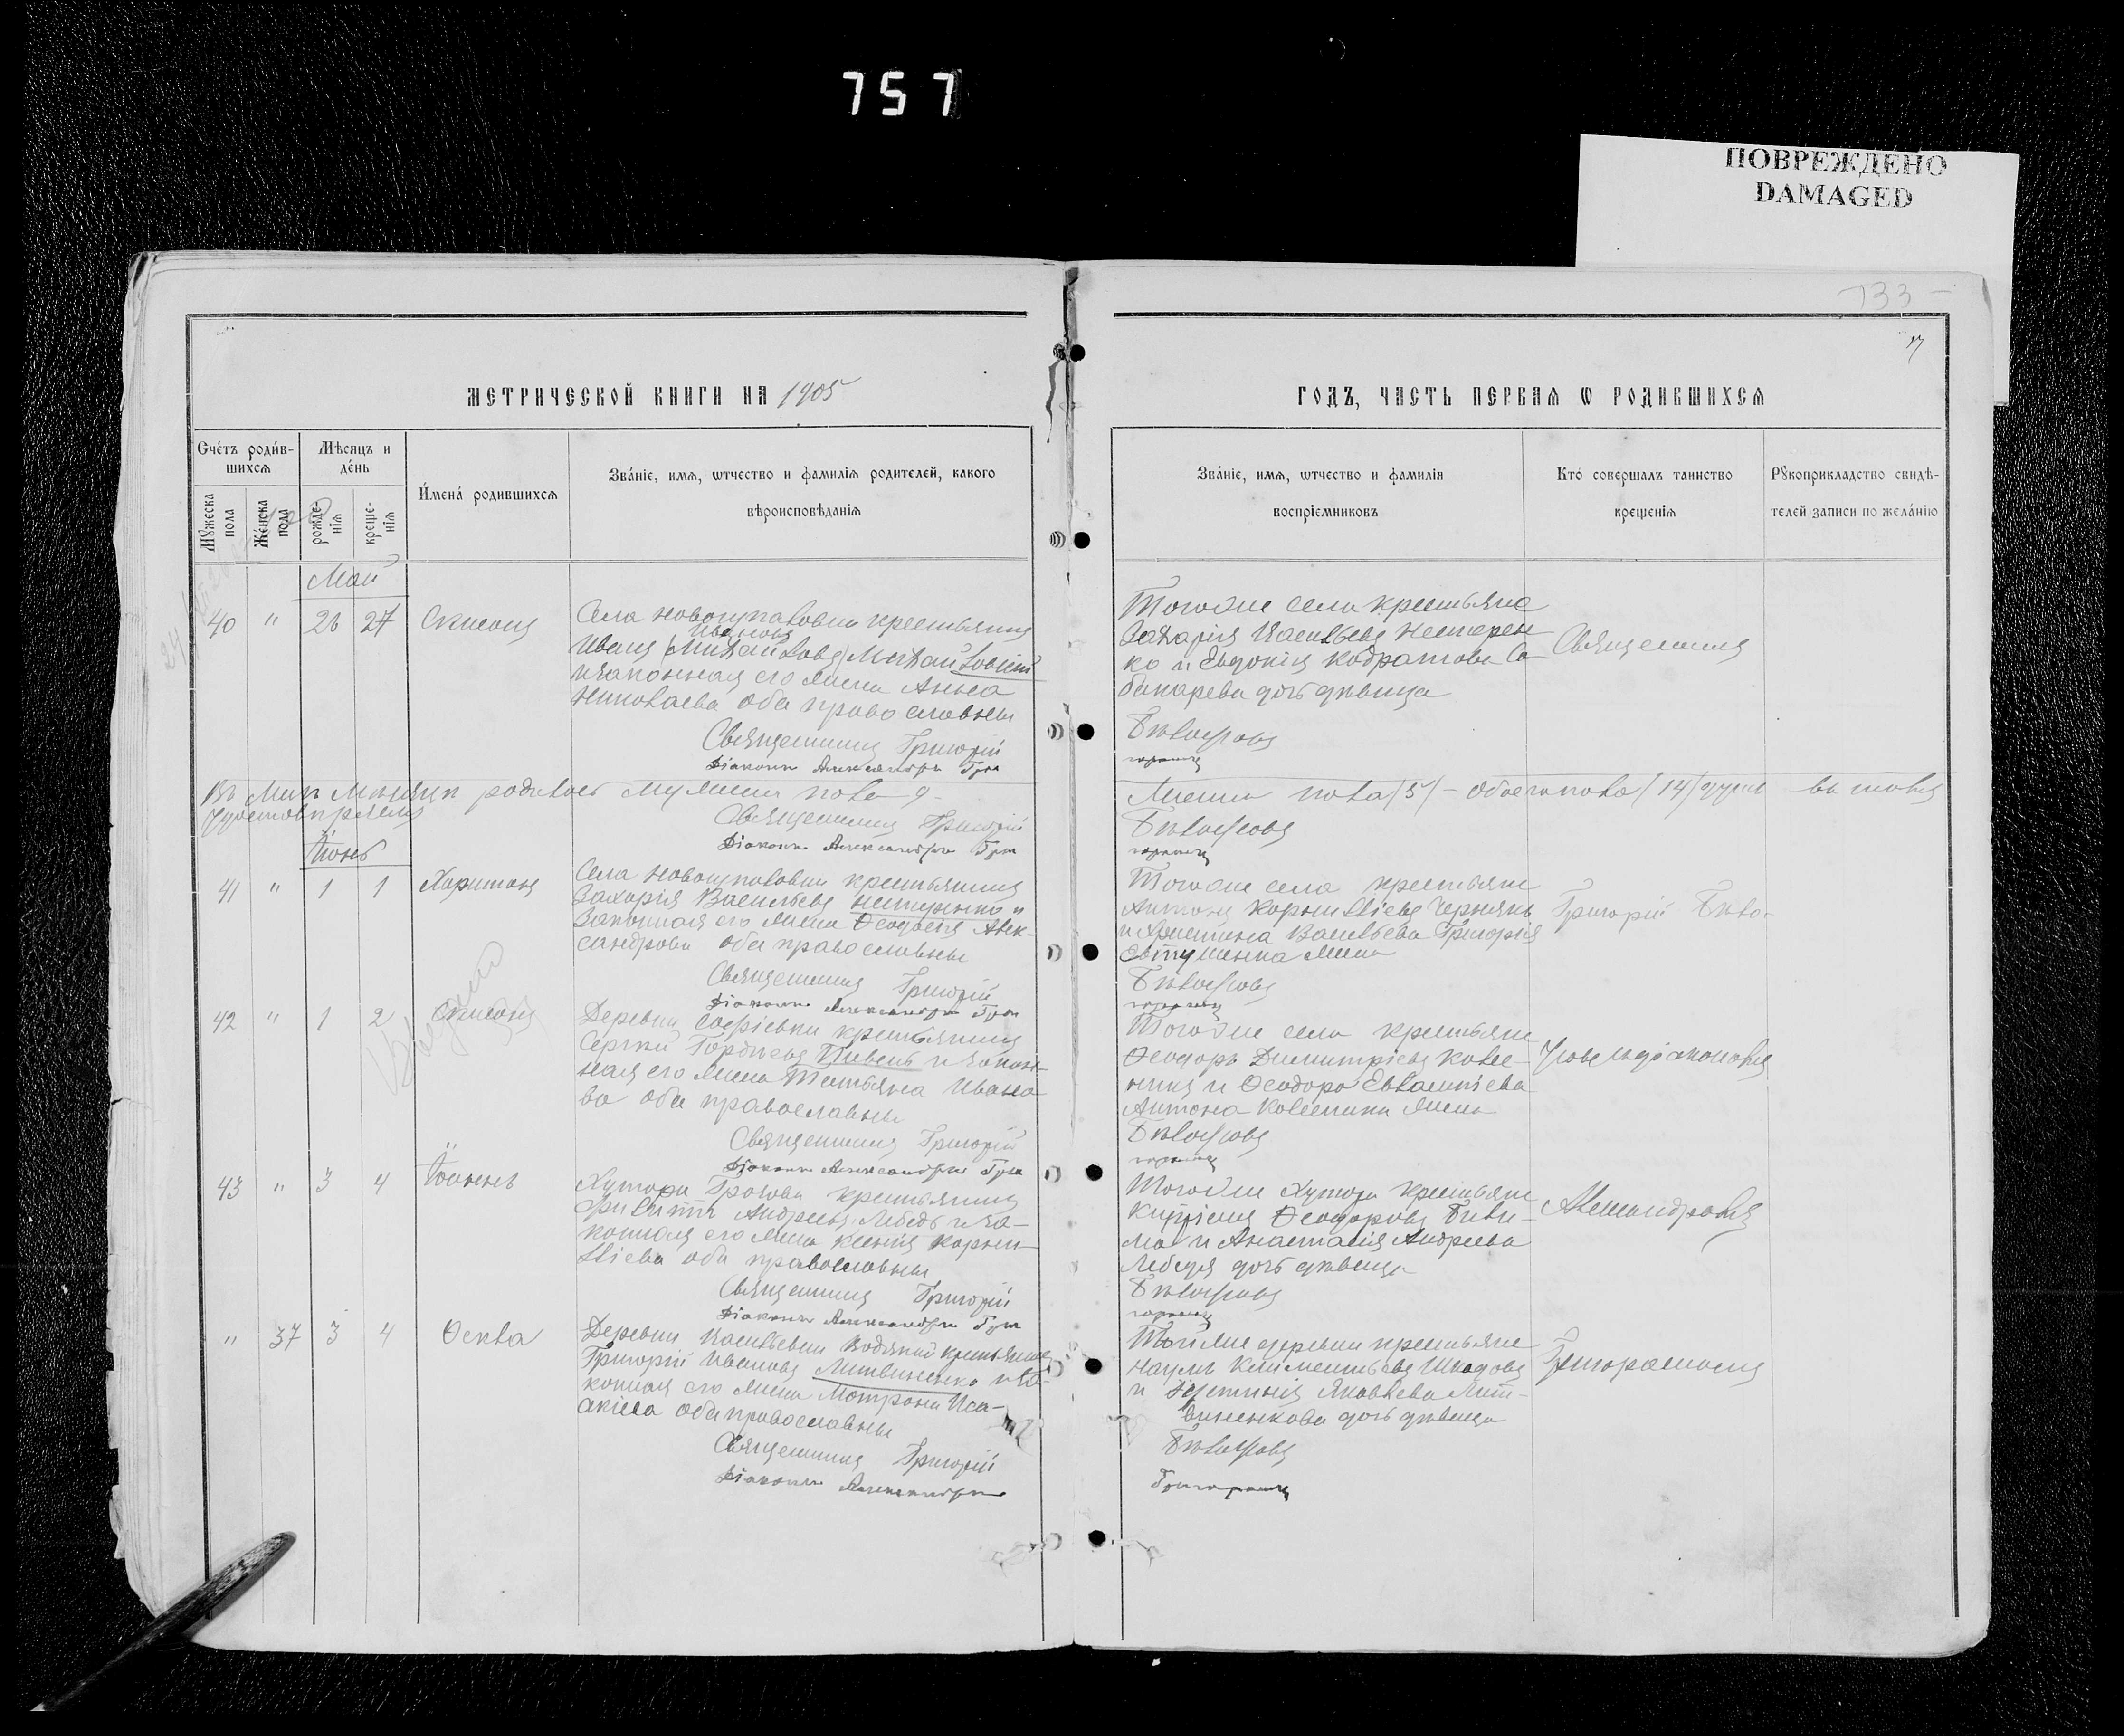 757
ПОВРЕЖДЕНО
DAMAGED
133
17
МЕТРИЧЕСКОЙ КНИГИ НА 1905
ГОДЪ, ЧАСТЬ ПЕРВАЯ Ѡ РОДИВШИХСЯ
Счéтъ роди́в-
шихсѧ
Мѣсяцъ и
де́нь
Мꙋ́жеска
пола
Же́нска
пола
рожде-
нїѧ
креще-
нїѧ
И́мена́ родившихсѧ
Зва́нїе, имѧ, ѡтчество и фамилїѧ родителей, какого
вѣроисповѣданїѧ
Зва́нїе, имѧ, ѡтчество и фамилїѧ
воспрїемниковъ
Кто́ совершалъ таинство
крещенїѧ
Рꙋкоприкладство свидѣ-
телей записи по жела́нїю
Май
40 " 26 27
Села Новогупаловки крестьянинъ
Иванъ Ивановъ (Михайловъ) Михайловскій
и законная его жена Анна
Николаева оба православны
Священникъ Григорій
Діаконъ Александръ Гри
Тогоже села крестьяне
Захарія Васильевъ Нестерен-
ко и Евдокія Кодратова
дочь дѣвица
Бѣлоусовъ
горашъ
Священникъ
Въ Маѣ Мѣсяцѣ родилось мужеска пола 9 -
Женска пола /5/ - обоего пола /14/ душъ
Священникъ Григорій
Діаконъ Александръ Гри
Бѣлоусовъ
горашъ
Іюнь
41 " 1 1 Харитонъ
Села Новогупаловки крестьянинъ
Захарія Васильевъ Нестеренко и
Законная его жена Ѳеодосія Алек-
сандрова оба православны
Священникъ Григорій
Діаконъ Александръ Гри
Тогоже села крестьяне
Антонъ Корнилліевъ Чернякъ
и Христина Васильева Григорія
жена
Бѣлоусовъ
горашъ
Григорій Бѣло-
42 " 1 2
Деревни Софіевки крестьянинъ
Сергій Гордѣевъ Пивень и закон-
ная его жена Татьяна Ивано-
ва оба православны
Священникъ Григорій
Діаконъ Александръ Гри
Тогоже села крестьяне
Ѳеодоръ Димитріевъ
и Ѳеодора Евлампіева
Антона жена
Бѣлоусовъ
горашъ
усовъ діаконовъ
43 " 3 4 Іоаннъ
Хутора Грозова крестьянинъ
Филиппъ Андреевъ Лебедь и за-
конная его жена Ксенія Корни-
лліева оба православны
Священникъ Григорій
Діаконъ Александръ Гри
Тогоже Хутора крестьяне
Кипріанъ Ѳеодоровъ
и Анастасія Андреева
Лебедя дочь дѣвица
Бѣлоусовъ
горашъ
Александровъ
" 37 3 4 Ѳекла
Деревни Васильевки Водяной крестьянинъ
Григорій Ивановъ Литвиненко и за-
конная его жена Матрона Иса-
акіева оба православны
Священникъ Григорій
Діаконъ Александръ
Тойже деревни крестьяне
Наумъ Климентьевъ Шкадовъ
и Яковлева Лит-
виненкова дочь дѣвица
Бѣлоусовъ
Григорашъ